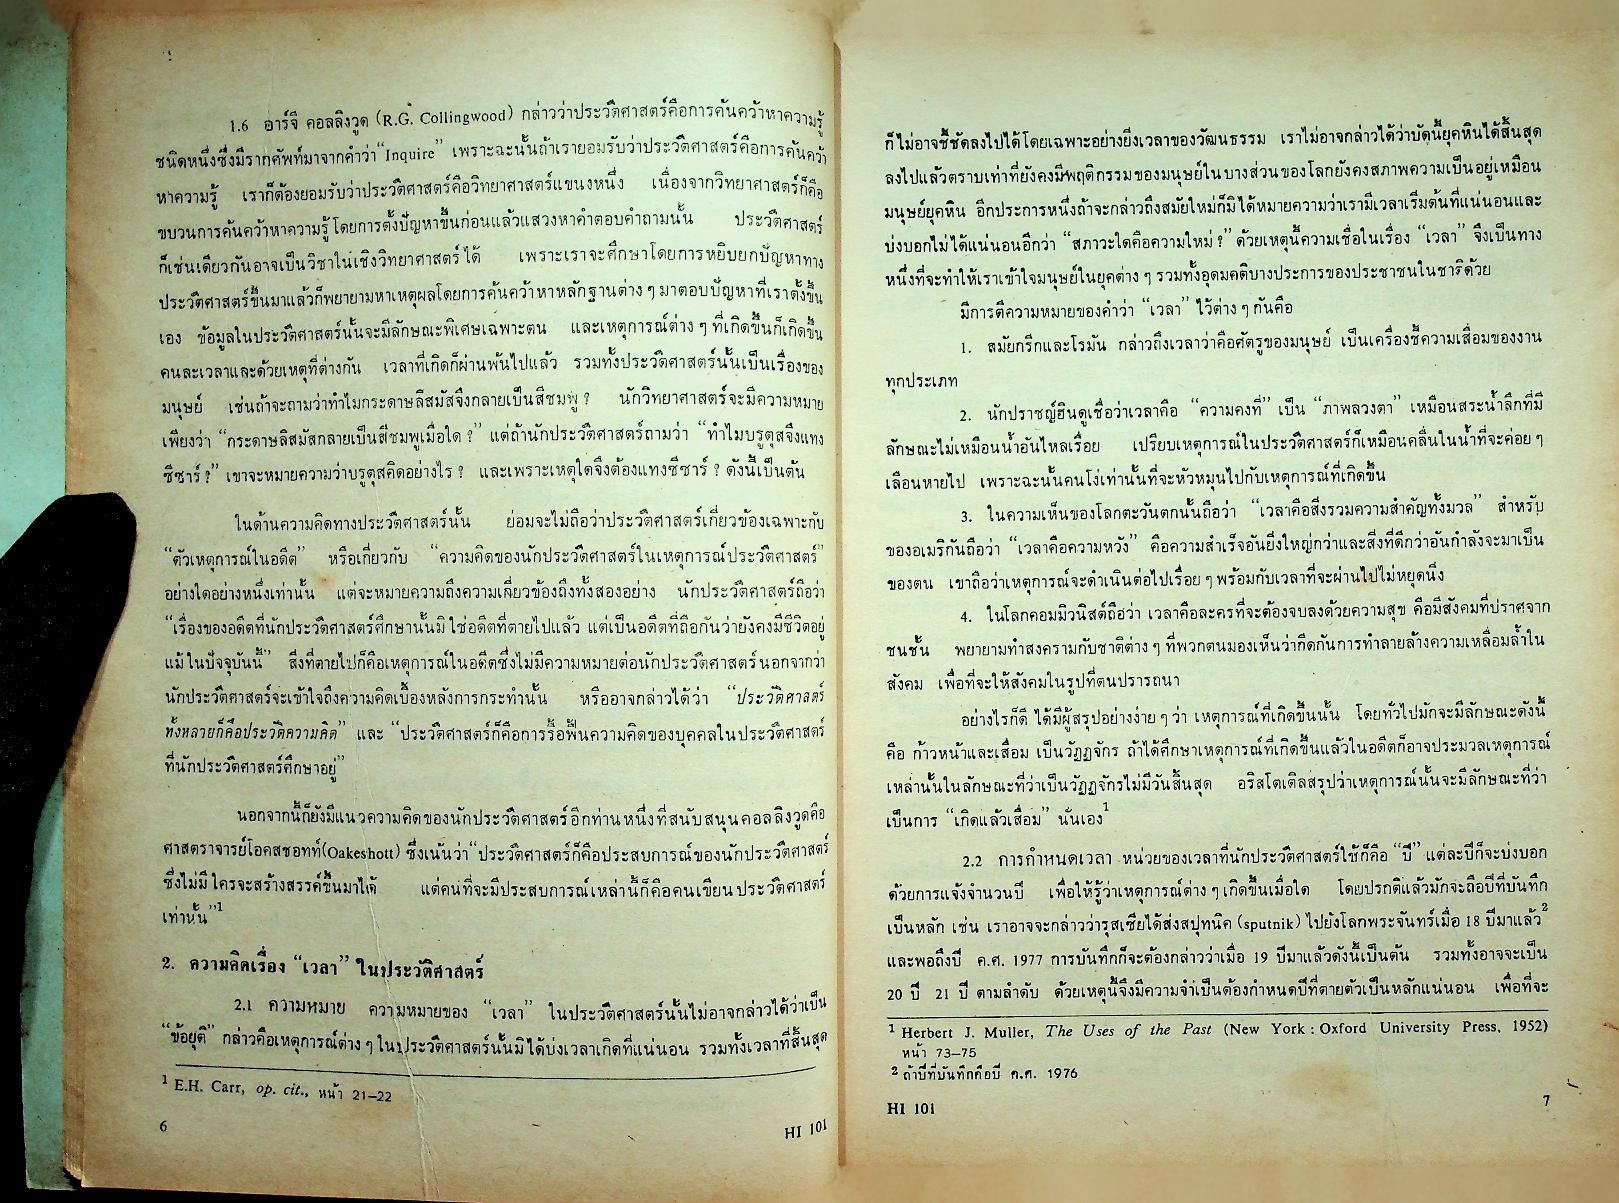 1.6 อาร์จี คอลลิงวูด (R.G. Collingwood) กล่าวว่าประวัติศาสตร์คือการค้นคว้าหาความรู้
ชนิดหนึ่งซึ่งมีรากศัพท์มาจากคำว่า“Inquire” เพราะฉะนั้นถ้าเรายอมรับว่าประวัติศาสตร์คือการค้นคว้า
หาความรู้ เราก็ต้องยอมรับว่าประวัติศาสตร์คือวิทยาศาสตร์แขนงหนึ่ง เนื่องจากวิทยาศาสตร์ก็คือ
ขบวนการค้นคว้าหาความรู้โดยการตั้งปัญหาขึ้นก่อนแล้วแสวงหาคำตอบคำถามนั้น ประวัติศาสตร์
ก็เช่นเดียวกันอาจเป็นวิชาในเชิงวิทยาศาสตร์ได้ เพราะเราจะศึกษาโดยการหยิบยกปัญหาทาง
ประวัติศาสตร์ขึ้นมาแล้วก็พยายามหาเหตุผลโดยการค้นคว้าหาหลักฐานต่าง ๆ มาตอบปัญหาที่เราตั้งขึ้น
เอง ข้อมูลในประวัติศาสตร์นั้นจะมีลักษณะพิเศษเฉพาะตน และเหตุการณ์ต่าง ๆ ที่เกิดขึ้นก็เกิดขึ้น
คนละเวลาและด้วยเหตุที่ต่างกัน เวลาที่เกิดก็ผ่านพ้นไปแล้ว รวมทั้งประวัติศาสตร์นั้นเป็นเรื่องของ
มนุษย์ เช่นถ้าจะถามว่าทำไมกระดาษลิสมัสจึงกลายเป็นสีชมพู ? นักวิทยาศาสตร์จะมีความหมาย
เพียงว่า “กระดาษลิสมัสกลายเป็นสีชมพูเมื่อใด ?” แต่ถ้านักประวัติศาสตร์ถามว่า “ทำไมบรูตุสจึงแทง
ซีซาร์ ?” เขาจะหมายความว่าบรูตุสคิดอย่างไร ? และเพราะเหตุใดจึงต้องแทงซีซาร์ ? ดังนี้เป็นต้น
ในด้านความคิดทางประวัติศาสตร์นั้น ย่อมจะไม่ถือว่าประวัติศาสตร์เกี่ยวข้องเฉพาะกับ
“ตัวเหตุการณ์ในอดีต” หรือเกี่ยวกับ “ความคิดของนักประวัติศาสตร์ในเหตุการณ์ประวัติศาสตร์”
อย่างใดอย่างหนึ่งเท่านั้น แต่จะหมายความถึงความเกี่ยวข้องถึงทั้งสองอย่าง นักประวัติศาสตร์ถือว่า
“เรื่องของอดีตที่นักประวัติศาสตร์ศึกษานั้นมิใช่อดีตที่ตายไปแล้ว แต่เป็นอดีตที่ถือกันว่ายังคงมีชีวิตอยู่
แม้ในปัจจุบันนี้” สิ่งที่ตายไปก็คือเหตุการณ์ในอดีตซึ่งไม่มีความหมายต่อนักประวัติศาสตร์นอกจากว่า
นักประวัติศาสตร์จะเข้าใจถึงความคิดเบื้องหลังการกระทำนั้น หรืออาจกล่าวได้ว่า “ประวัติศาสตร์
ทั้งหลายก็คือประวัติความคิด” และ “ประวัติศาสตร์ก็คือการรื้อฟื้นความคิดของบุคคลในประวัติศาสตร์
ที่นักประวัติศาสตร์ศึกษาอยู่”
นอกจากนี้ก็ยังมีแนวความคิดของนักประวัติศาสตร์อีกท่านหนึ่งที่สนับสนุนคอลลิงวูดคือ
ศาสตราจารย์โอคสชอทท์(Oakeshott) ซึ่งเน้นว่า“ประวัติศาสตร์ก็คือประสบการณ์ของนักประวัติศาสตร์
ซึ่งไม่มีใครจะสร้างสรรค์ขึ้นมาได้ แต่คนที่จะมีประสบการณ์เหล่านี้ก็คือคนเขียนประวัติศาสตร์
เท่านั้น”¹
2. ความคิดเรื่อง “เวลา” ในประวัติศาสตร์
2.1 ความหมาย ความหมายของ “เวลา” ในประวัติศาสตร์นั้นไม่อาจกล่าวได้ว่าเป็น
“ข้อยุติ” กล่าวคือเหตุการณ์ต่าง ๆ ในประวัติศาสตร์นั้นมิได้บ่งเวลาเกิดที่แน่นอน รวมทั้งเวลาที่สิ้นสุด
¹ E.H. Carr, op. cit., หน้า 21–22
6
HI 101
ก็ไม่อาจชี้ชัดลงไปได้โดยเฉพาะอย่างยิ่งเวลาของวัฒนธรรม เราไม่อาจกล่าวได้ว่าบัดนี้ยุคหินได้สิ้นสุด
ลงไปแล้วตราบเท่าที่ยังคงมีพฤติกรรมของมนุษย์ในบางส่วนของโลกยังคงสภาพความเป็นอยู่เหมือน
มนุษย์ยุคหิน อีกประการหนึ่งถ้าจะกล่าวถึงสมัยใหม่ก็มิได้หมายความว่าเรามีเวลาเริ่มต้นที่แน่นอนและ
บ่งบอกไม่ได้แน่นอนอีกว่า “สภาวะใดคือความใหม่ ?” ด้วยเหตุนี้ความเชื่อในเรื่อง “เวลา” จึงเป็นทาง
หนึ่งที่จะทำให้เราเข้าใจมนุษย์ในยุคต่าง ๆ รวมทั้งอุดมคติบางประการของประชาชนในชาติด้วย
มีการตีความหมายของคำว่า “เวลา” ไว้ต่าง ๆ กันคือ
1. สมัยกรีกและโรมัน กล่าวถึงเวลาว่าคือศัตรูของมนุษย์ เป็นเครื่องชี้ความเสื่อมของงาน
ทุกประเภท
2. นักปราชญ์ฮินดูเชื่อว่าเวลาคือ “ความคงที่” เป็น “ภาพลวงตา” เหมือนสระน้ำลึกที่มี
ลักษณะไม่เหมือนน้ำอันไหลเรื่อย เปรียบเหตุการณ์ในประวัติศาสตร์ก็เหมือนคลื่นในน้ำที่จะค่อย ๆ
เลือนหายไป เพราะฉะนั้นคนโง่เท่านั้นที่จะหัวหมุนไปกับเหตุการณ์ที่เกิดขึ้น
3. ในความเห็นของโลกตะวันตกนั้นถือว่า “เวลาคือสิ่งรวมความสำคัญทั้งมวล” สำหรับ
ของอเมริกันถือว่า “เวลาคือความหวัง” คือความสำเร็จอันยิ่งใหญ่กว่าและสิ่งที่ดีกว่าอันกำลังจะมาเป็น
ของตน เขาถือว่าเหตุการณ์จะดำเนินต่อไปเรื่อย ๆ พร้อมกับเวลาที่จะผ่านไปไม่หยุดนิ่ง
4. ในโลกคอมมิวนิสต์ถือว่า เวลาคือละครที่จะต้องจบลงด้วยความสุข คือมีสังคมที่ปราศจาก
ชนชั้น พยายามทำสงครามกับชาติต่าง ๆ ที่พวกตนมองเห็นว่ากีดกันการทำลายล้างความเหลื่อมล้ำใน
สังคม เพื่อที่จะให้สังคมในรูปที่ตนปรารถนา
อย่างไรก็ดี ได้มีผู้สรุปอย่างง่าย ๆ ว่า เหตุการณ์ที่เกิดขึ้นนั้น โดยทั่วไปมักจะมีลักษณะดังนี้
คือ ก้าวหน้าและเสื่อม เป็นวัฏฏจักร ถ้าได้ศึกษาเหตุการณ์ที่เกิดขึ้นแล้วในอดีตก็อาจประมวลเหตุการณ์
เหล่านั้นในลักษณะที่ว่าเป็นวัฏฏจักรไม่มีวันสิ้นสุด อริสโตเติลสรุปว่าเหตุการณ์นั้นจะมีลักษณะที่ว่า
เป็นการ “เกิดแล้วเสื่อม” นั่นเอง¹
2.2 การกำหนดเวลา หน่วยของเวลาที่นักประวัติศาสตร์ใช้ก็คือ “ปี” แต่ละปีก็จะบ่งบอก
ด้วยการแจ้งจำนวนปี เพื่อให้รู้ว่าเหตุการณ์ต่าง ๆ เกิดขึ้นเมื่อใด โดยปรกติแล้วมักจะถือปีที่บันทึก
เป็นหลัก เช่น เราอาจจะกล่าวว่ารุสเซียได้ส่งสปุทนิค (sputnik) ไปยังโลกพระจันทร์เมื่อ 18 ปีมาแล้ว²
และพอถึงปี ค.ศ. 1977 การบันทึกก็จะต้องกล่าวว่าเมื่อ 19 ปีมาแล้วดังนี้เป็นต้น รวมทั้งอาจจะเป็น
20 ปี 21 ปี ตามลำดับ ด้วยเหตุนี้จึงมีความจำเป็นต้องกำหนดปีที่ตายตัวเป็นหลักแน่นอน เพื่อที่จะ
¹ Herbert J. Muller, The Uses of the Past (New York : Oxford University Press, 1952)
หน้า 73–75
² ถ้าปีที่บันทึกคือปี ค.ศ. 1976
HI 101
7